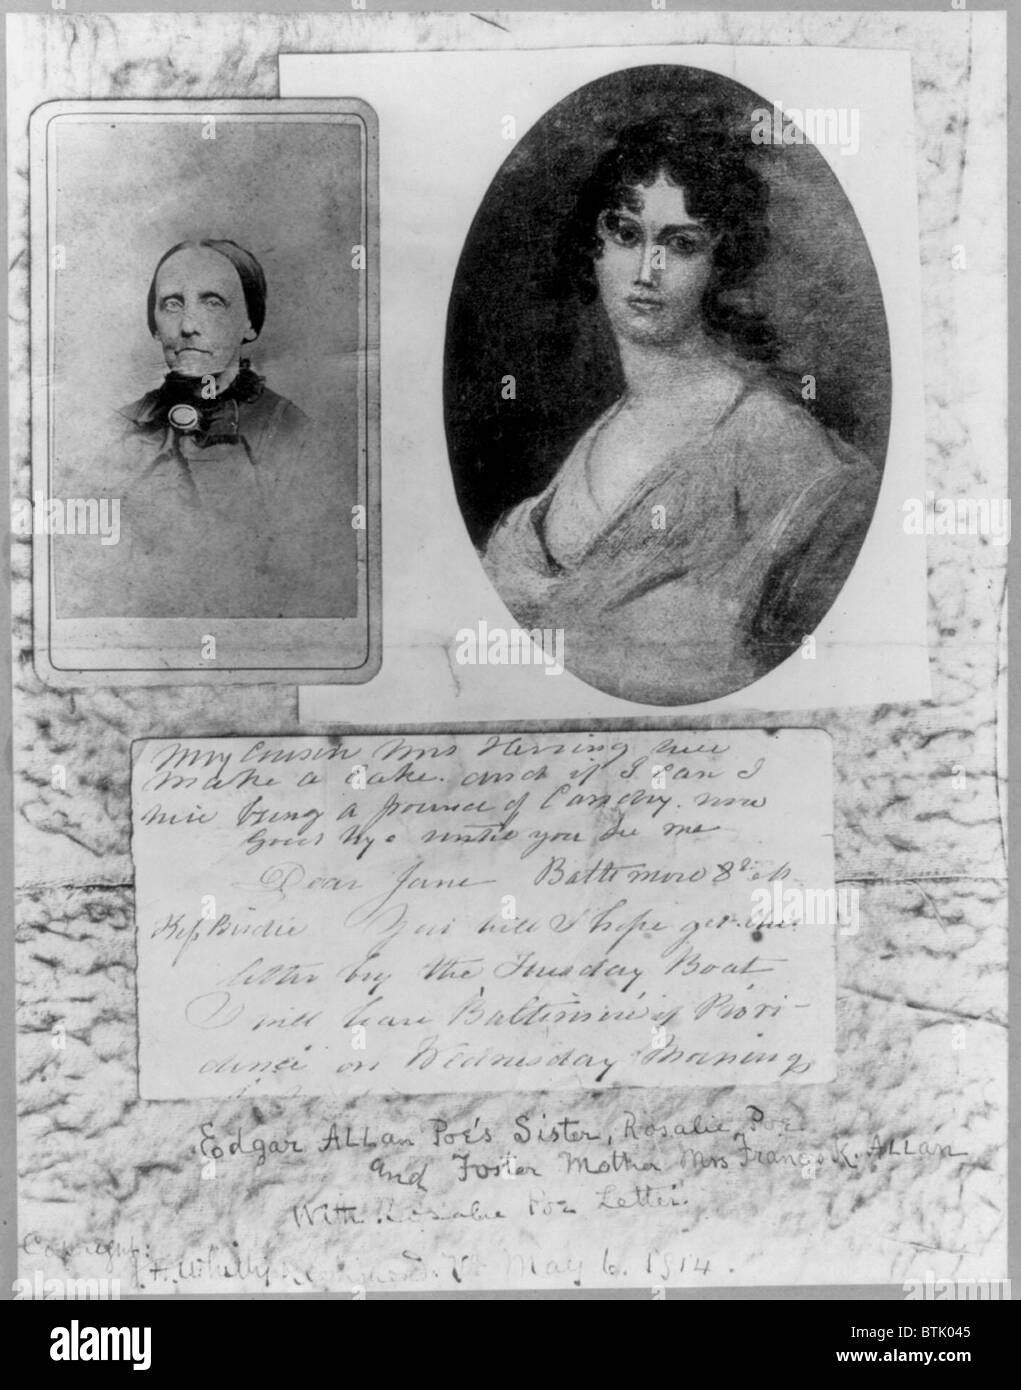 My Cousin Mrs Herring will
make a cake. and if I can I
will bring a pound of Candy. now
Good bye until you see me
Dear Jane Baltimore 8
Kiss Birdie You will I hope get this
letter by the Tuesday Boat
I will leave Baltimore if Provi-
dence on Wednesday Morning
Edgar ALLan Poe's Sister, Rosalie Poe
and Foster Mother Mrs Francis K. ALLan
With Rosalie Poe Letter.
Copyright:
Whitty Richmond. Va May 6. 1914.
alamy
alamy stock photo
Image ID: BTK045
www.alamy.com